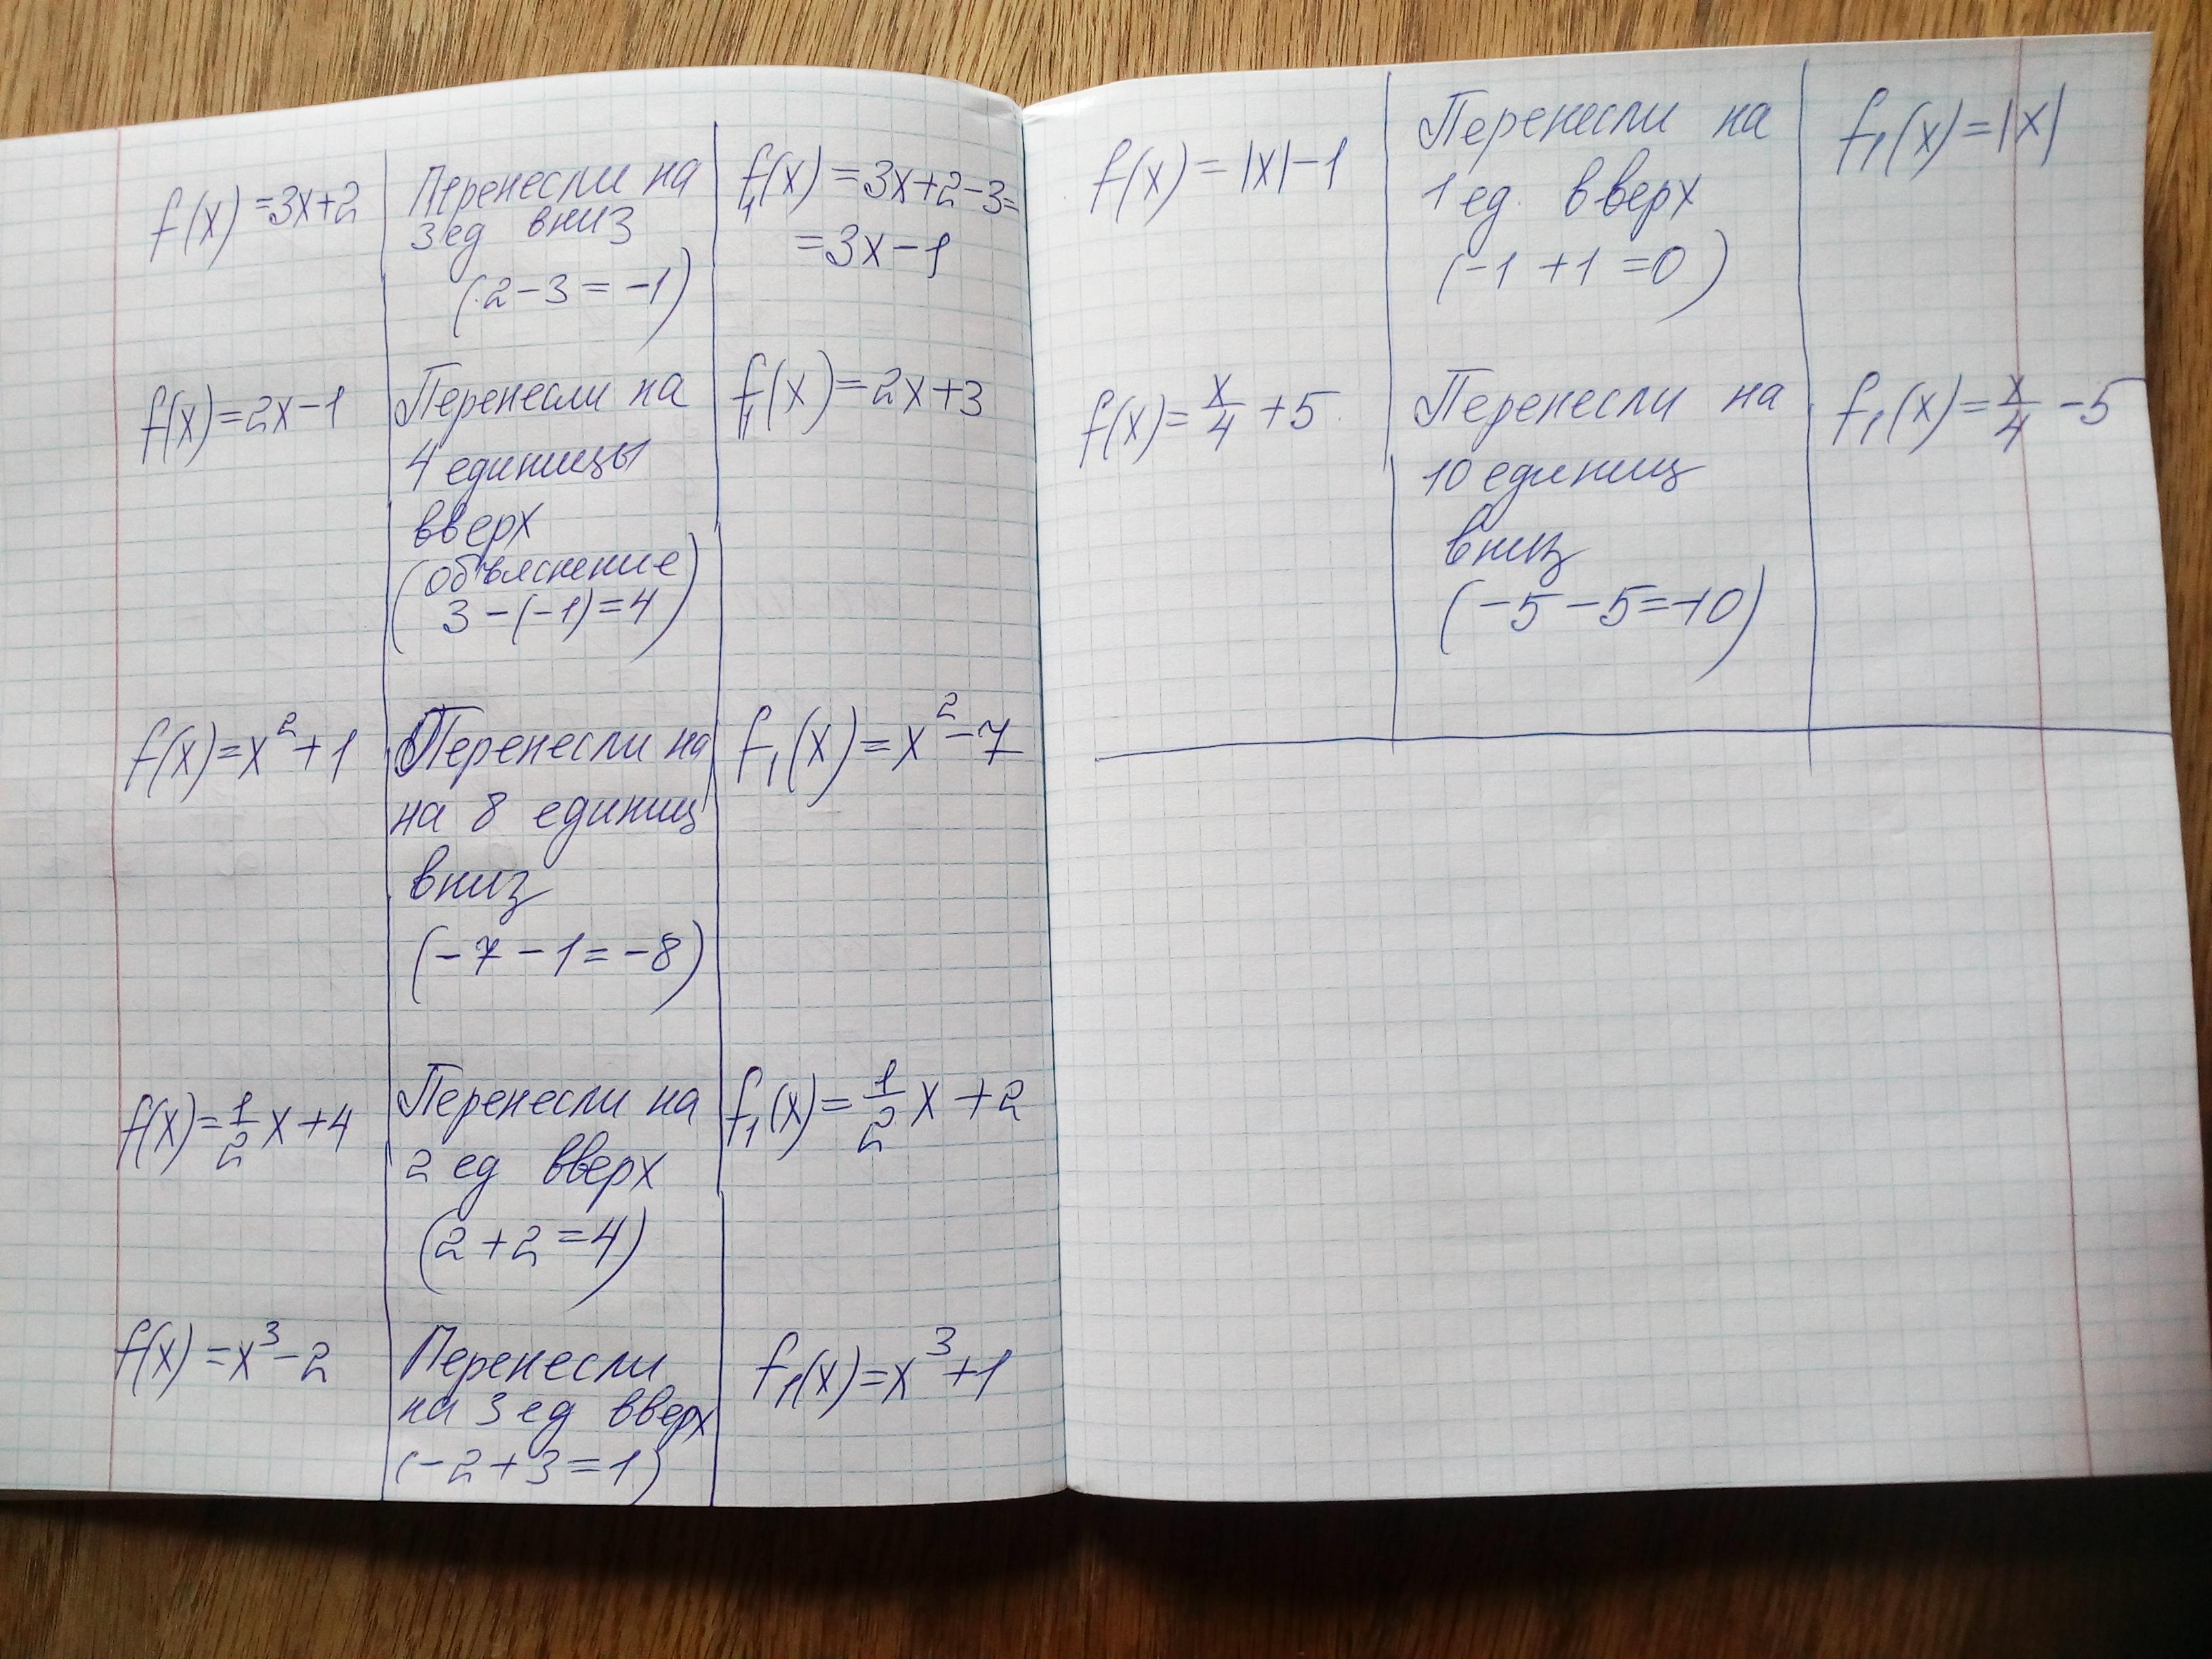 f(x) = 3x+2
Перенесли на
3 ед вниз
(2-3 = -1)
f₁(x) = 3x+2-3=
= 3x-1
f(x)=2x-1
Перенесли на
4 единицы
вверх
(объяснение
3-(-1)=4)
f₁(x)=2x+3
f(x)=x²+1
Перенесли на
на 8 единиц
вниз
(-7-1=-8)
f₁(x)=x²-7
f(x)=1/2 x+4
Перенесли на
2 ед вверх
(2+2=4)
f₁(x)=1/2 x+2
f(x)=x³-2
Перенесли
на 3 ед вверх
(-2+3=1)
f₁(x)=x³+1
f(x)=|x|-1
Перенесли на
1 ед. вверх
(-1+1=0)
f₁(x)=|x|
f(x)=x/4+5
Перенесли на
10 единиц
вниз
(-5-5=-10)
f₁(x)=x/4-5